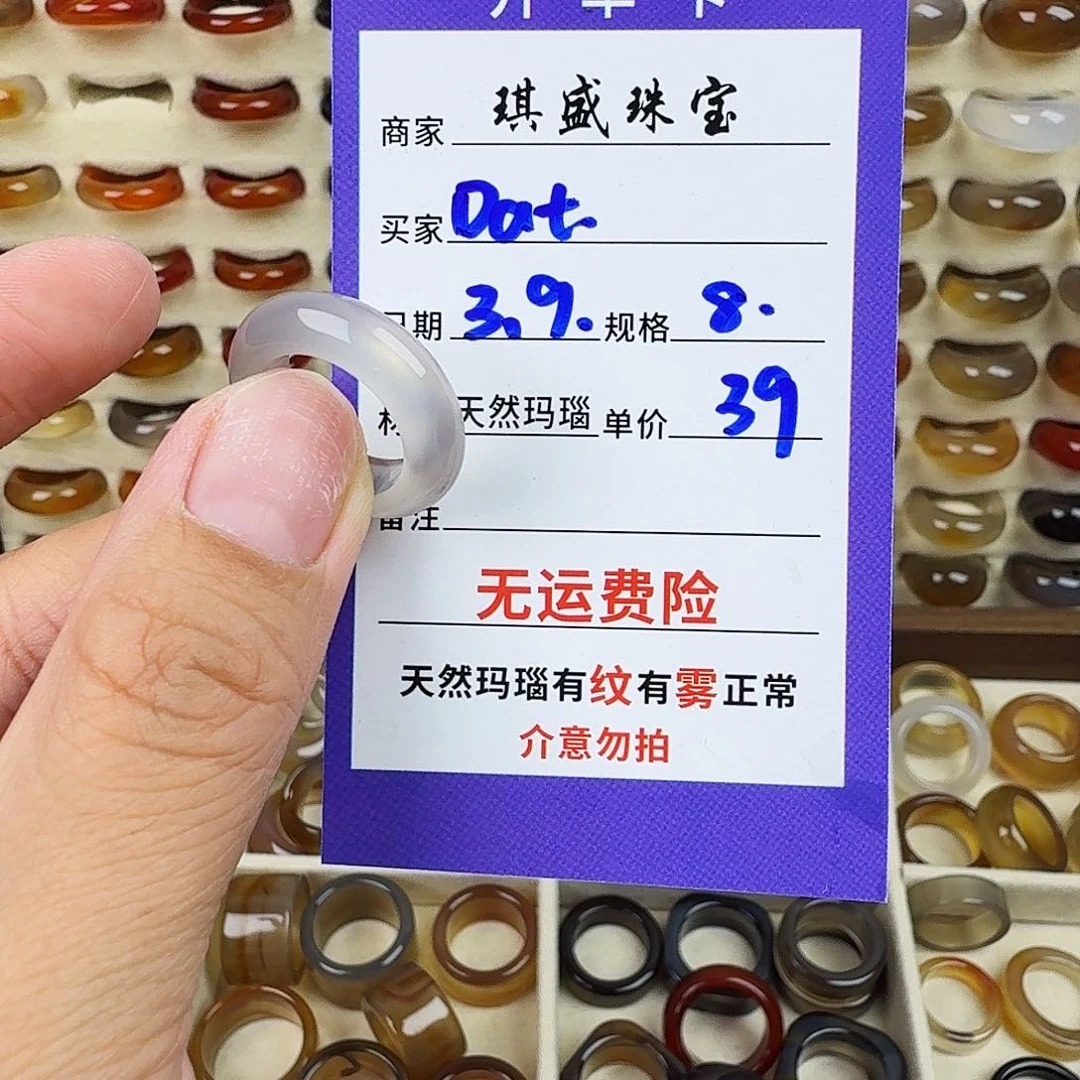 开单卡
商家 琪盛珠宝
买家 Dat.
日期 3.9. 规格 8.
材 天然玛瑙 单价 39
备注
无运费险
天然玛瑙有纹有雾正常
介意勿拍